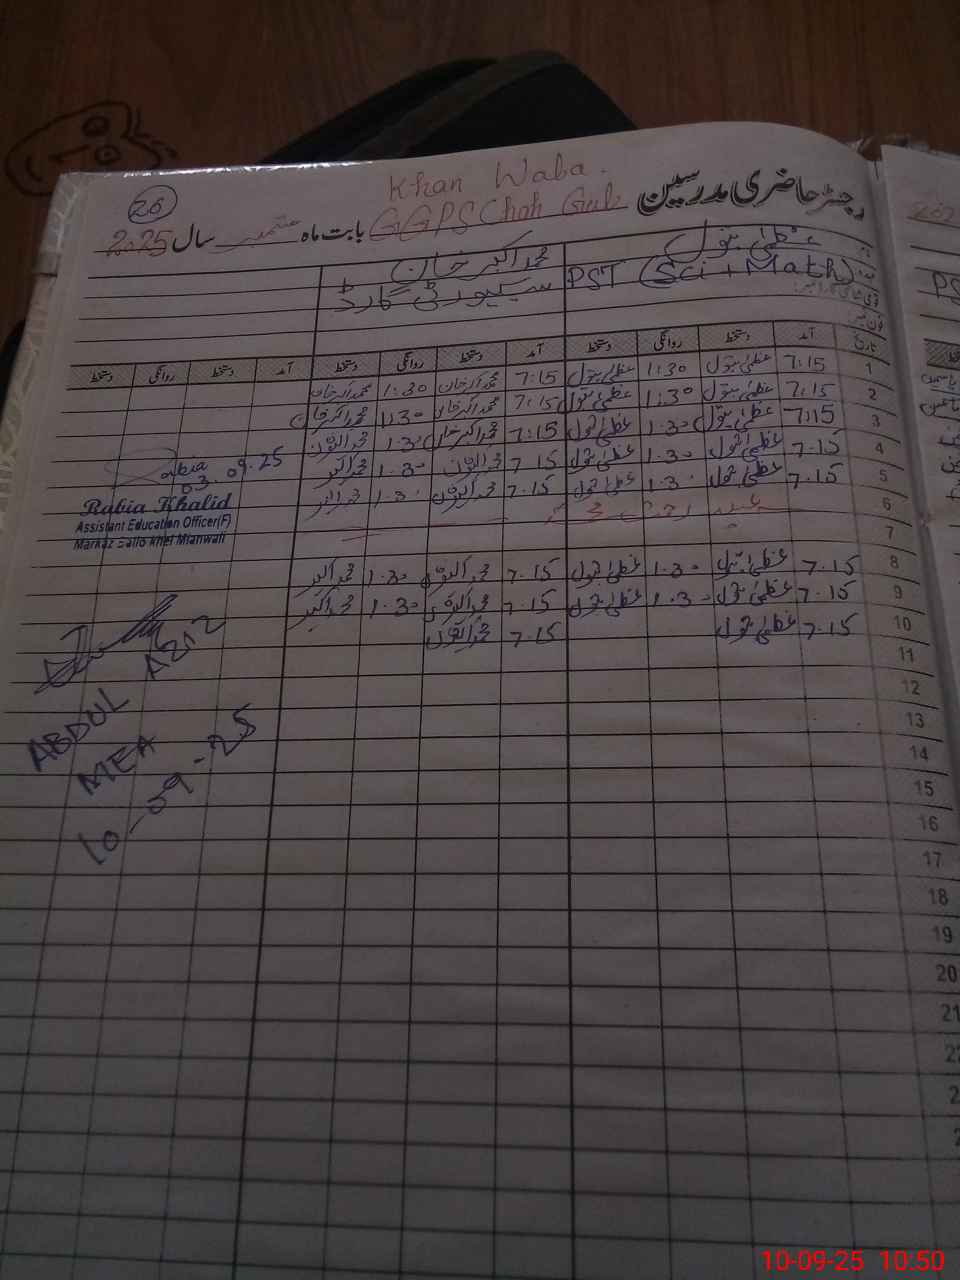 26
Khan Waba.
رجسٹر حاضری مدرسین GGPS Chah Gul بابت ماہ ستمبر سال 2025
عظمیٰ بتول محمد اکبر خان
PST (Sci + Math) سیکیورٹی گارڈ
فون نمبر:
تاریخ آمد دستخط روانگی دستخط آمد دستخط روانگی دستخط آمد دستخط روانگی دستخط
1 7:15 عظمیٰ بتول 1:30 عظمیٰ بتول 7:15 محمد اکبر خان 1:30 محمد اکبر خان
2 7:15 عظمیٰ بتول 1:30 عظمیٰ بتول 7:15 محمد اکبر خان 1:30 محمد اکبر خان
3 7:15 عظمیٰ بتول 1:30 عظمیٰ بتول 7:15 محمد اکبر خان 1:30
4 7.15 عظمیٰ بتول 1.30 عظمیٰ بتول 7.15 1.30 محمد اکبر
5 7.15 عظمیٰ بتول 1.30 عظمیٰ بتول 7.15 1.30 محمد اکبر
6
7
8 7.15 عظمیٰ بتول 1.30 عظمیٰ بتول 7.15 1.30 محمد اکبر
9 7.15 عظمیٰ بتول 1.30 عظمیٰ بتول 7.15 1.30 محمد اکبر
10 7.15 عظمیٰ بتول 7.15
11
12
13
14
15
16
17
18
19
20
21
Rabia
03.09.25
Rabia Khalid
Assistant Education Officer(F)
Markaz Ballo Khel Mianwali
ABDUL AZIZ
MEA
10-09-25
PS
10-09-25 10:50